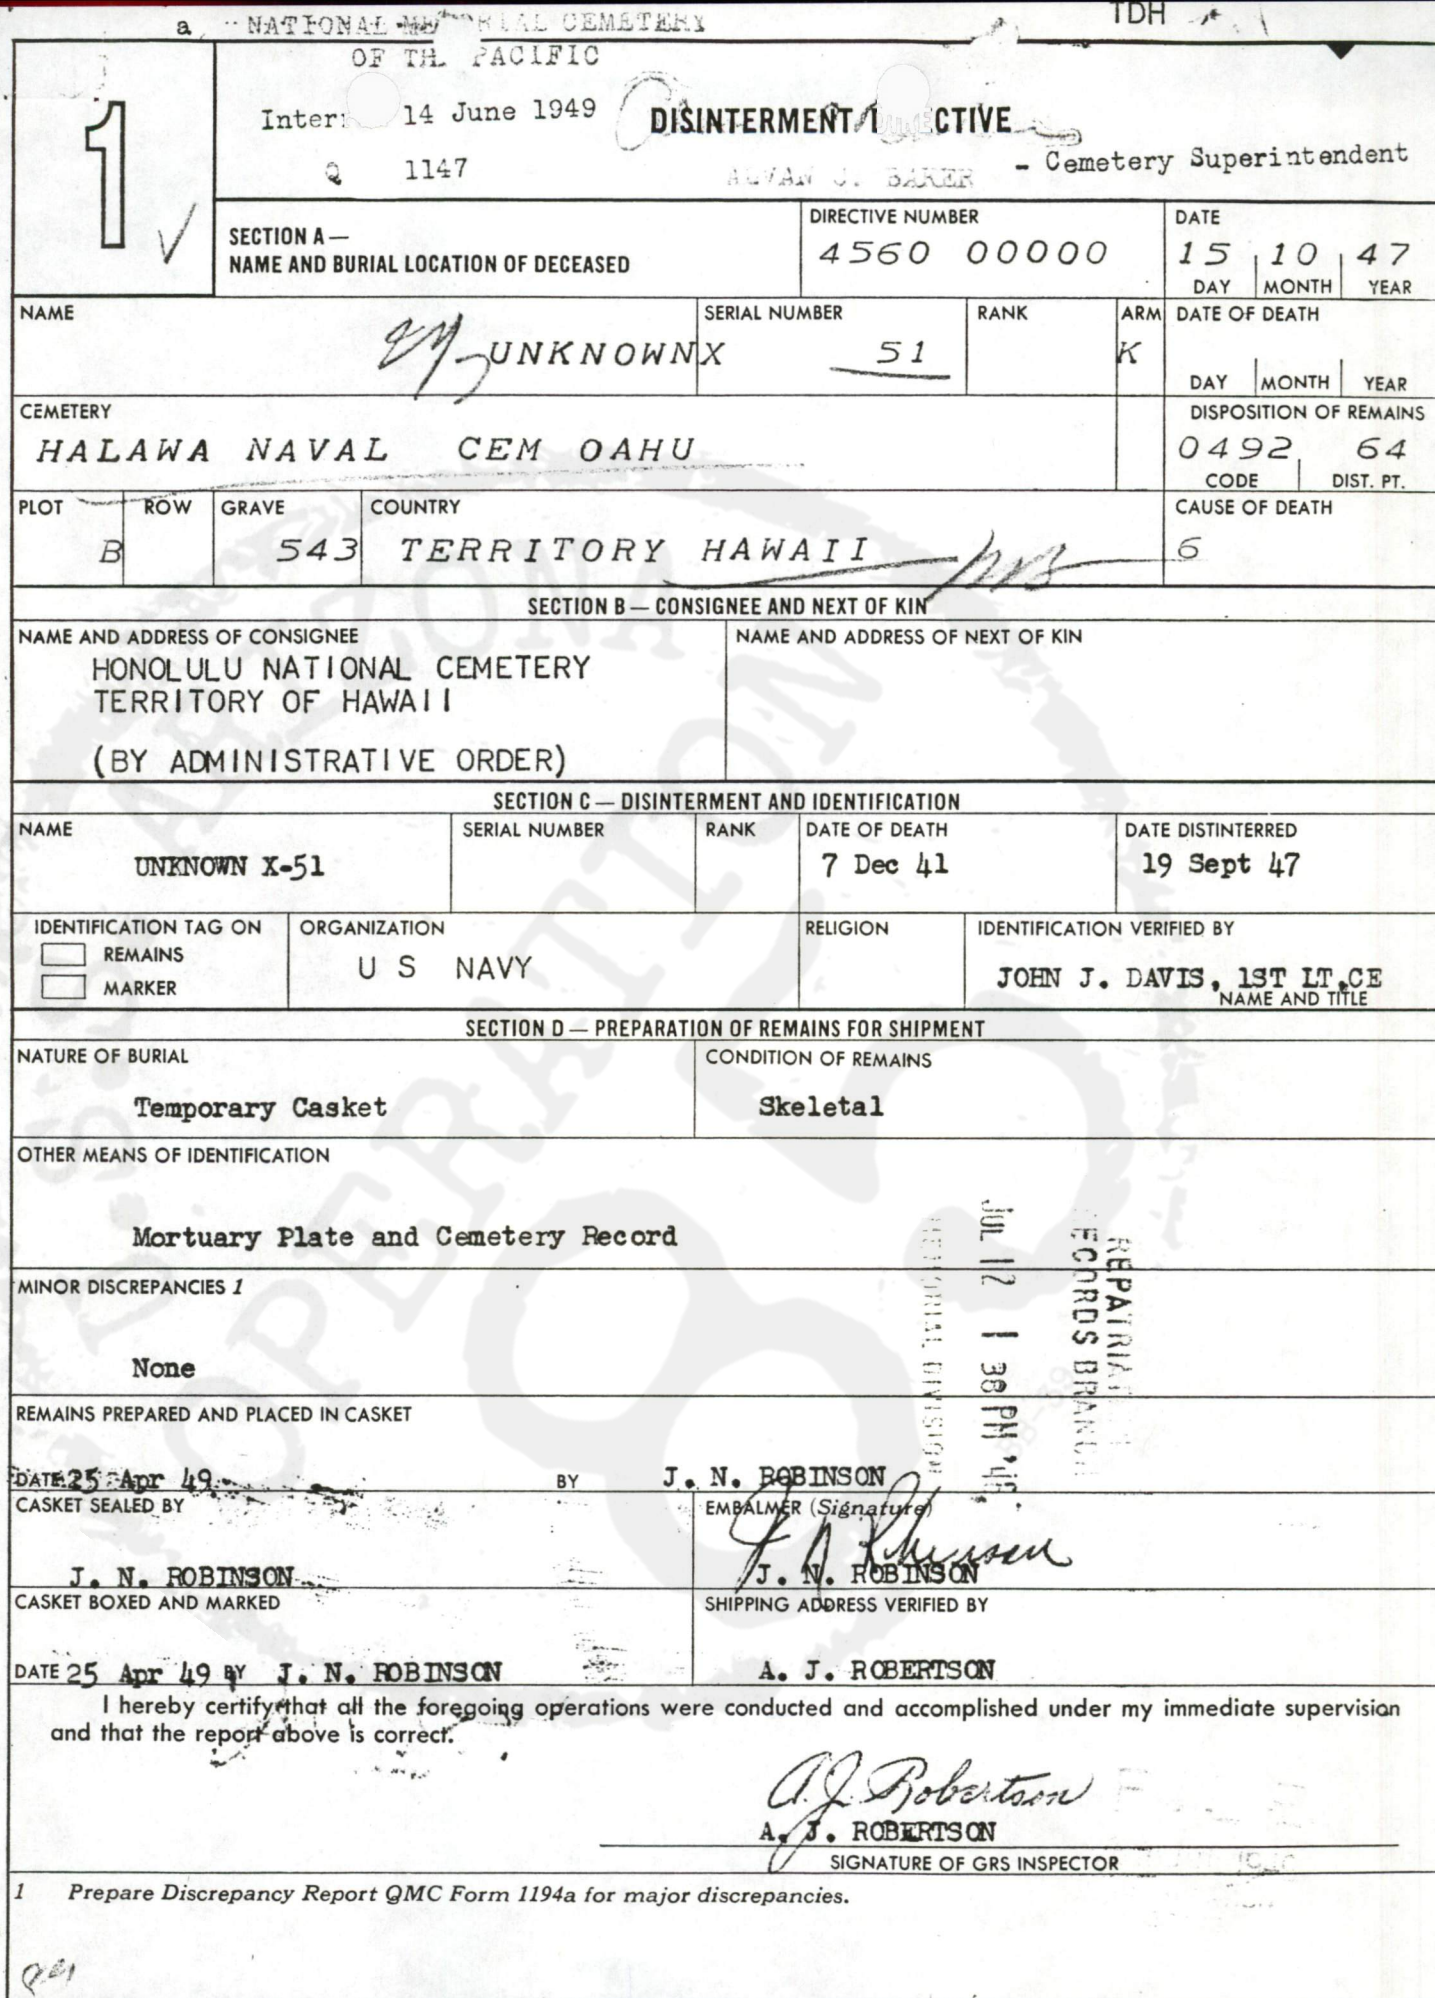 a NATIONAL MEMORIAL CEMETERY
OF THE PACIFIC
TDH
1
Inter: 14 June 1949
DISINTERMENT DIRECTIVE
Q 1147
ALVAN J. BAKER - Cemetery Superintendent
SECTION A—
NAME AND BURIAL LOCATION OF DECEASED
DIRECTIVE NUMBER
4560 00000
DATE
15 10 47
DAY MONTH YEAR
NAME
UNKNOWN
SERIAL NUMBER
X 51
RANK
ARM
K
DATE OF DEATH
DAY MONTH YEAR
CEMETERY
HALAWA NAVAL CEM OAHU
DISPOSITION OF REMAINS
0492 64
CODE DIST. PT.
PLOT
B
ROW
GRAVE
543
COUNTRY
TERRITORY HAWAII
CAUSE OF DEATH
6
SECTION B — CONSIGNEE AND NEXT OF KIN
NAME AND ADDRESS OF CONSIGNEE
HONOLULU NATIONAL CEMETERY
TERRITORY OF HAWAII
(BY ADMINISTRATIVE ORDER)
NAME AND ADDRESS OF NEXT OF KIN
SECTION C — DISINTERMENT AND IDENTIFICATION
NAME
UNKNOWN X-51
SERIAL NUMBER
RANK
DATE OF DEATH
7 Dec 41
DATE DISTINTERRED
19 Sept 47
IDENTIFICATION TAG ON
REMAINS
MARKER
ORGANIZATION
U S NAVY
RELIGION
IDENTIFICATION VERIFIED BY
JOHN J. DAVIS, 1ST LT,CE
NAME AND TITLE
SECTION D — PREPARATION OF REMAINS FOR SHIPMENT
NATURE OF BURIAL
Temporary Casket
CONDITION OF REMAINS
Skeletal
OTHER MEANS OF IDENTIFICATION
Mortuary Plate and Cemetery Record
MINOR DISCREPANCIES 1
None
REPATRIAT
RECORDS BRANCH
JUL 12 1 38 PM '49
MEMORIAL DIVISION
REMAINS PREPARED AND PLACED IN CASKET
DATE 25 Apr 49 BY J. N. ROBINSON
CASKET SEALED BY
J. N. ROBINSON
EMBALMER (Signature)
J N Robinson
J. N. ROBINSON
CASKET BOXED AND MARKED
DATE 25 Apr 49 BY J. N. ROBINSON
SHIPPING ADDRESS VERIFIED BY
A. J. ROBERTSON
I hereby certify that all the foregoing operations were conducted and accomplished under my immediate supervision
and that the report above is correct.
A. J. Robertson
A. J. ROBERTSON
SIGNATURE OF GRS INSPECTOR
1 Prepare Discrepancy Report QMC Form 1194a for major discrepancies.
U.S.S. ARIZONA
OPERATION
85